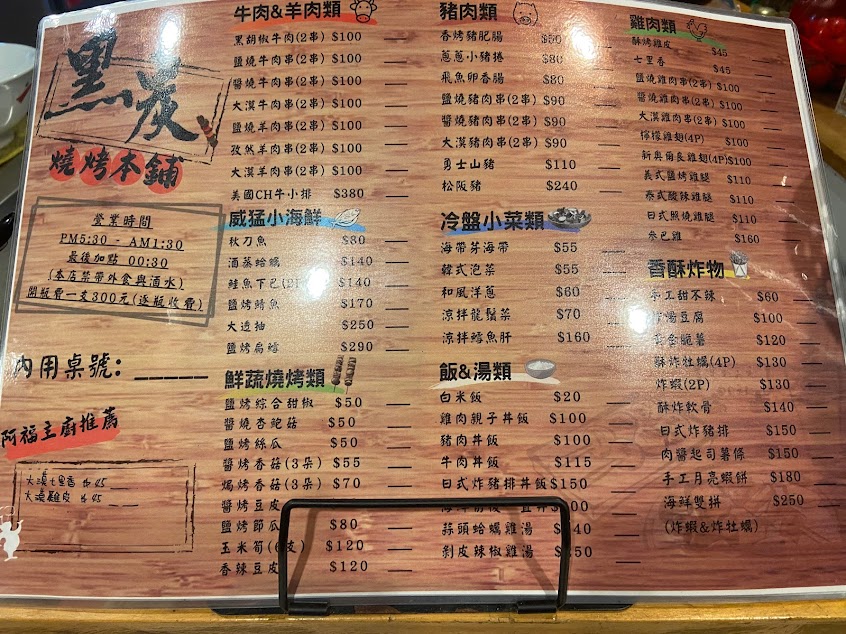 黑炭
燒烤本舖
營業時間
PM5:30 - AM1:30
最後加點 00:30
(本店禁帶外食與酒水)
開瓶費一支300元(逐瓶收費)
內用桌號:
阿福主廚推薦
大漠七里香 $45
大漠雞皮 $45
牛肉&羊肉類
黑胡椒牛肉(2串) $100
鹽燒牛肉串(2串) $100
醬燒牛肉串(2串) $100
大漠牛肉串(2串) $100
鹽燒羊肉串(2串) $100
孜然羊肉串(2串) $100
大漠羊肉串(2串) $100
美國CH牛小排 $380
威猛小海鮮
秋刀魚 $80
酒蒸蛤蠣 $140
鮭魚下巴 $140
鹽烤鯖魚 $170
大透抽 $250
鹽烤扁鱈 $290
鮮蔬燒烤類
鹽烤綜合甜椒 $50
醬燒杏鮑菇 $50
鹽烤絲瓜 $50
醬烤香菇(3朵) $55
焗烤香菇(3朵) $70
醬烤豆皮
鹽烤節瓜 $80
玉米筍 $120
香辣豆皮 $120
豬肉類
香烤豬肥腸 $50
蔥蔥小豬捲 $80
飛魚卵香腸 $80
鹽燒豬肉串(2串) $90
醬燒豬肉串(2串) $90
大漠豬肉串(2串) $90
勇士山豬 $110
松阪豬 $240
冷盤小菜類
海帶芽海帶 $55
韓式泡菜 $55
和風洋蔥 $60
涼拌龍鬚菜 $70
涼拌鱈魚肝 $160
飯&湯類
白米飯 $20
雞肉親子丼飯 $100
豬肉丼飯 $100
牛肉丼飯 $115
日式炸豬排丼飯 $150
蒜頭蛤蠣雞湯
剝皮辣椒雞湯
雞肉類
酥烤雞皮 $45
七里香 $45
鹽燒雞肉串(2串) $100
醬燒雞肉串(2串) $100
大漠雞肉串(2串) $100
檸檬雞翅(4P) $100
新奧爾良雞翅(4P) $100
義式鹽烤雞腿 $110
泰式酸辣雞腿 $110
日式照燒雞腿 $110
參巴雞 $160
香酥炸物
手工甜不辣 $60
豆腐 $100
脆薯 $120
酥炸牡蠣(4P) $130
炸蝦(2P) $130
酥炸軟骨 $140
日式炸豬排 $150
肉醬起司薯條 $150
手工月亮蝦餅 $180
海鮮雙拼 $250
(炸蝦&炸牡蠣)